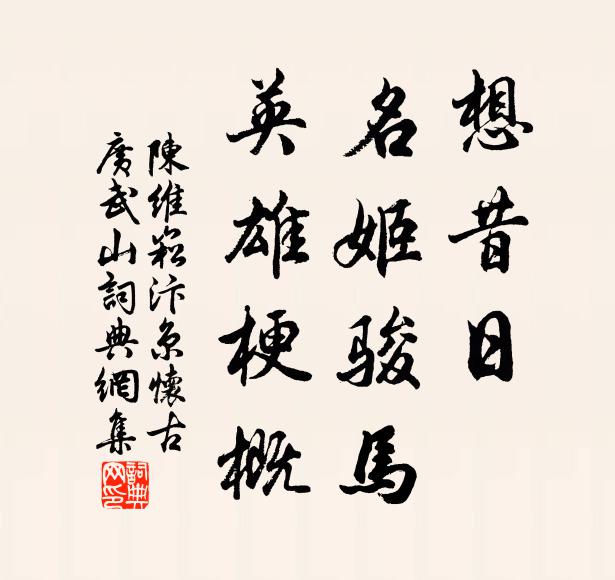 想昔日
名姬骏馬
英雄梗概
陳維崧汴京懷古
廣武山詞典網集
詞典网印